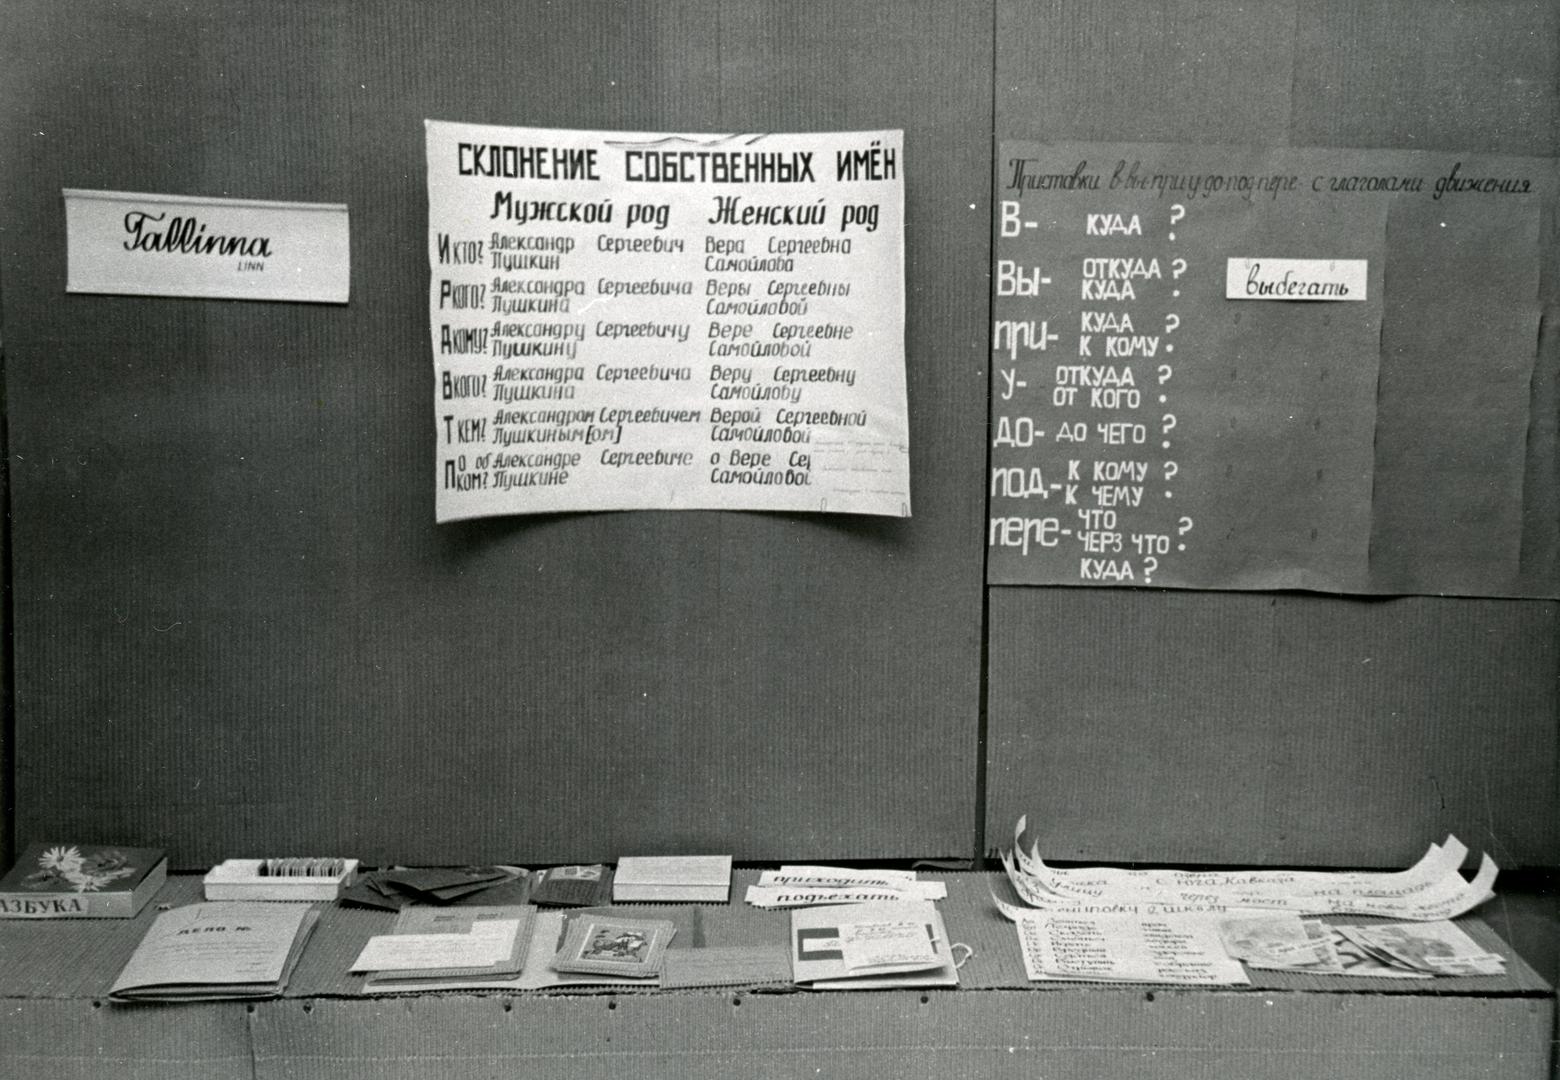 Tallinna
LINN
СКЛОНЕНИЕ СОБСТВЕННЫХ ИМЁН
Мужской род Женский род
И КТО? Александр Сергеевич Вера Сергеевна
Пушкин Самойлова
Р КОГО? Александра Сергеевича Веры Сергеевны
Пушкина Самойловой
Д КОМУ? Александру Сергеевичу Вере Сергеевне
Пушкину Самойловой
В КОГО? Александра Сергеевича Веру Сергеевну
Пушкина Самойлову
Т КЕМ? Александром Сергеевичем Верой Сергеевной
Пушкиным[ом] Самойловой
П О об КОМ? Александре Сергеевиче о Вере Сер
Пушкине Самойловой
Приставки в-вы-при-у-до-под-пере- с глаголами движения
В- КУДА ?
ВЫ- ОТКУДА ?
КУДА
выбегать
ПРИ- КУДА ?
К КОМУ
У- ОТКУДА ?
ОТ КОГО
ДО- ДО ЧЕГО ?
ПОД- К КОМУ ?
К ЧЕМУ
ПЕРЕ- ЧТО ?
ЧЕРЗ ЧТО
КУДА ?
АЗБУКА
ДЕЛО №
приходить
подъехать
с юга, Кавказа
улицу через мост на площадь
в школу